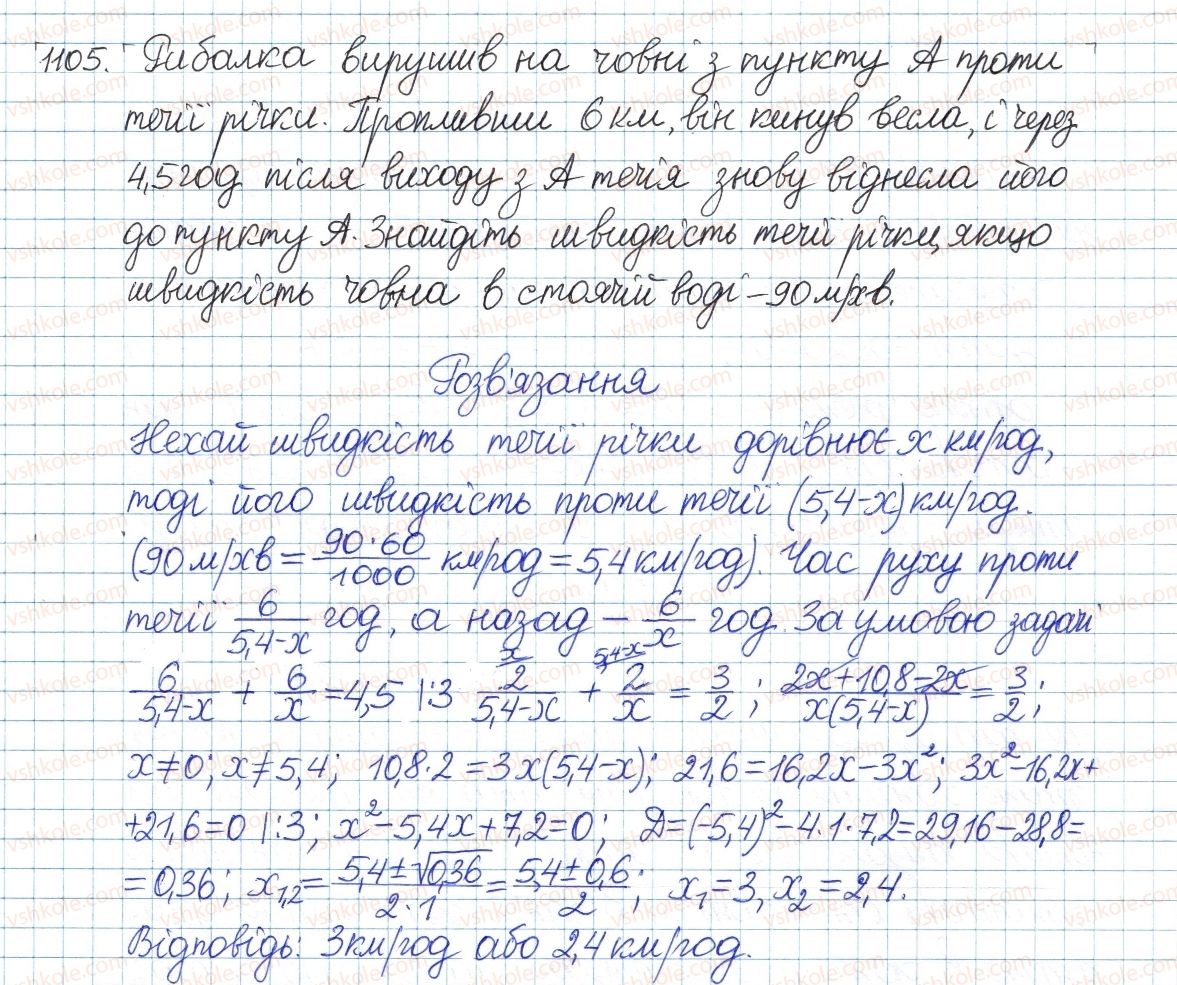 1105. Рибалка вирушив на човні з пункту А проти
течії річки. Пропливши 6 км, він кинув весла, і через
4,5 год після виходу з А течія знову віднесла його
до пункту А. Знайдіть швидкість течії річки, якщо
швидкість човна в стоячій воді – 90 м/хв.
Розв'язання
Нехай швидкість течії річки дорівнює x км/год,
тоді його швидкість проти течії (5,4-x) км/год.
(90 м/хв = 90·60/1000 км/год = 5,4 км/год). Час руху проти
течії 6/(5,4-x) год, а назад – 6/x год. За умовою задачі
6/(5,4-x) + 6/x = 4,5 |:3 x/ 2/(5,4-x) + 5,4-x/ 2/x = 3/2; (2x+10,8-2x)/(x(5,4-x)) = 3/2;
x≠0; x≠5,4; 10,8·2 = 3x(5,4-x); 21,6 = 16,2x-3x²; 3x²-16,2x+
+21,6=0 |:3; x²-5,4x+7,2=0; Д=(-5,4)²-4·1·7,2=29,16-28,8=
=0,36; x₁,₂= (5,4±√0,36)/(2·1) = (5,4±0,6)/2; x₁=3, x₂=2,4.
Відповідь: 3 км/год або 2,4 км/год.